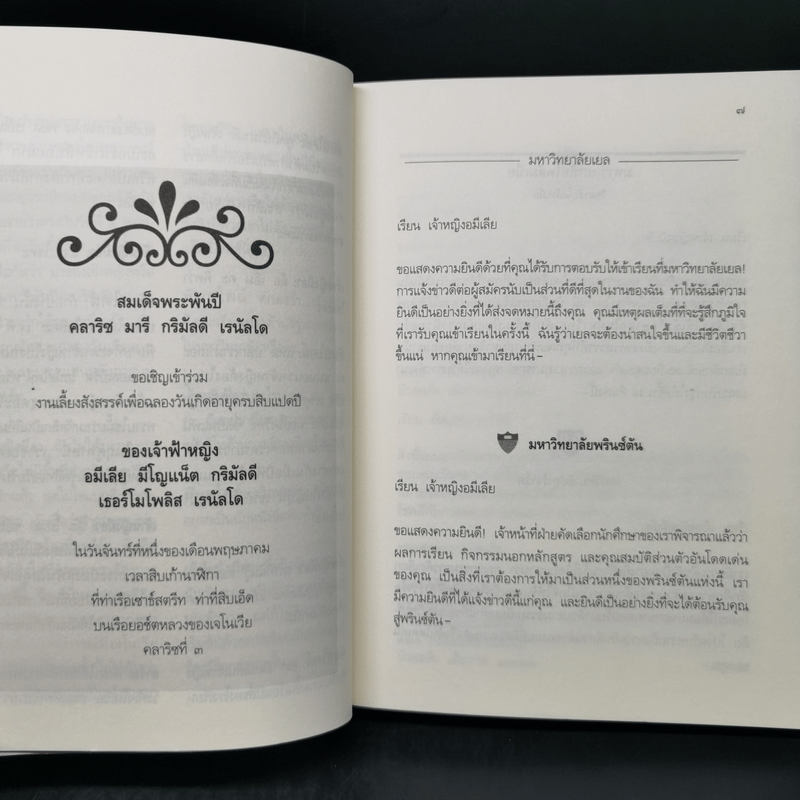 สมเด็จพระพันปี
คลาริซ มารี กริมัลดี เรนัลโด
ขอเชิญเข้าร่วม
งานเลี้ยงสังสรรค์เพื่อฉลองวันเกิดอายุครบสิบแปดปี
ของเจ้าฟ้าหญิง
อมีเลีย มีโญแน็ต กริมัลดี
เธอร์โมโพลิส เรนัลโด
ในวันจันทร์ที่หนึ่งของเดือนพฤษภาคม
เวลาสิบเก้านาฬิกา
ที่ท่าเรือเซาธ์สตรีท ท่าที่สิบเอ็ด
บนเรือยอช์ตหลวงของเจโนเวีย
คลาริซที่ ๓
๗
มหาวิทยาลัยเยล
เรียน เจ้าหญิงอมีเลีย
ขอแสดงความยินดีด้วยที่คุณได้รับการตอบรับให้เข้าเรียนที่มหาวิทยาลัยเยล!
การแจ้งข่าวดีต่อผู้สมัครนับเป็นส่วนที่ดีที่สุดในงานของฉัน ทำให้ฉันมีความ
ยินดีเป็นอย่างยิ่งที่ได้ส่งจดหมายนี้ถึงคุณ คุณมีเหตุผลเต็มที่ที่จะรู้สึกภูมิใจ
ที่เรารับคุณเข้าเรียนในครั้งนี้ ฉันรู้ว่าเยลจะต้องน่าสนใจขึ้นและมีชีวิตชีวา
ขึ้นแน่ หากคุณเข้ามาเรียนที่นี่–
มหาวิทยาลัยพรินซ์ตัน
เรียน เจ้าหญิงอมีเลีย
ขอแสดงความยินดี! เจ้าหน้าที่ฝ่ายคัดเลือกนักศึกษาของเราพิจารณาแล้วว่า
ผลการเรียน กิจกรรมนอกหลักสูตร และคุณสมบัติส่วนตัวอันโดดเด่น
ของคุณ เป็นสิ่งที่เราต้องการให้มาเป็นส่วนหนึ่งของพรินซ์ตันแห่งนี้ เรา
มีความยินดีที่ได้แจ้งข่าวดีนี้แก่คุณ และยินดีเป็นอย่างยิ่งที่จะได้ต้อนรับคุณ
สู่พรินซ์ตัน–